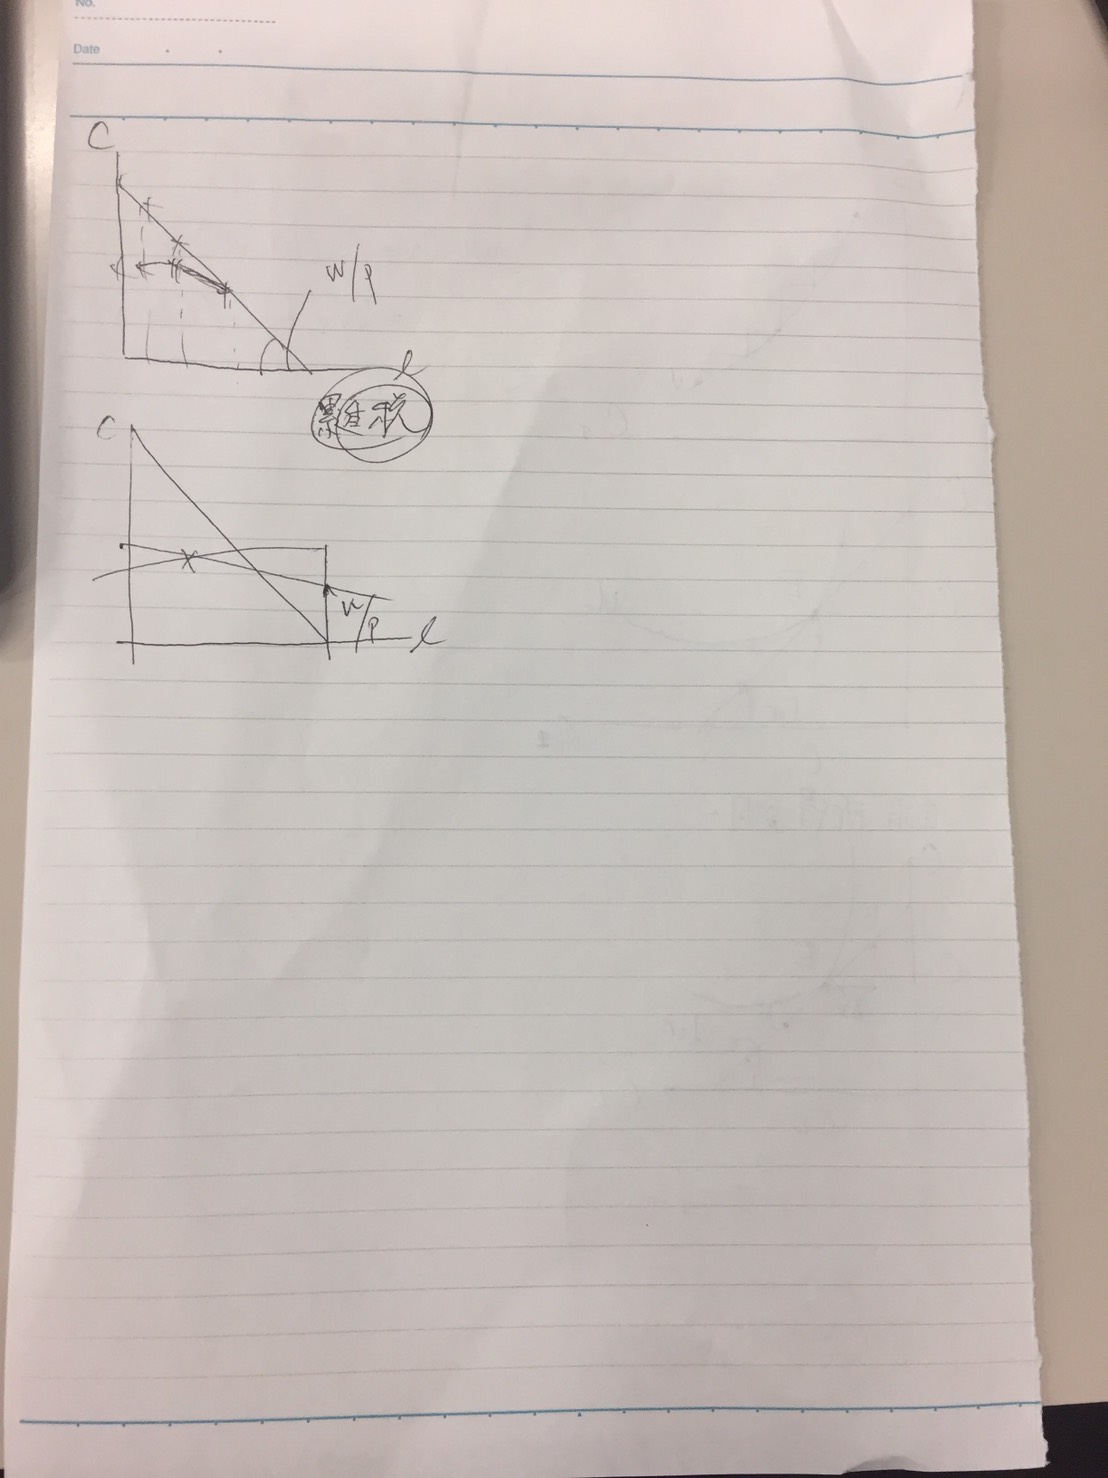 No.
Date
C
W/P
l
累進税
C
W/P
l